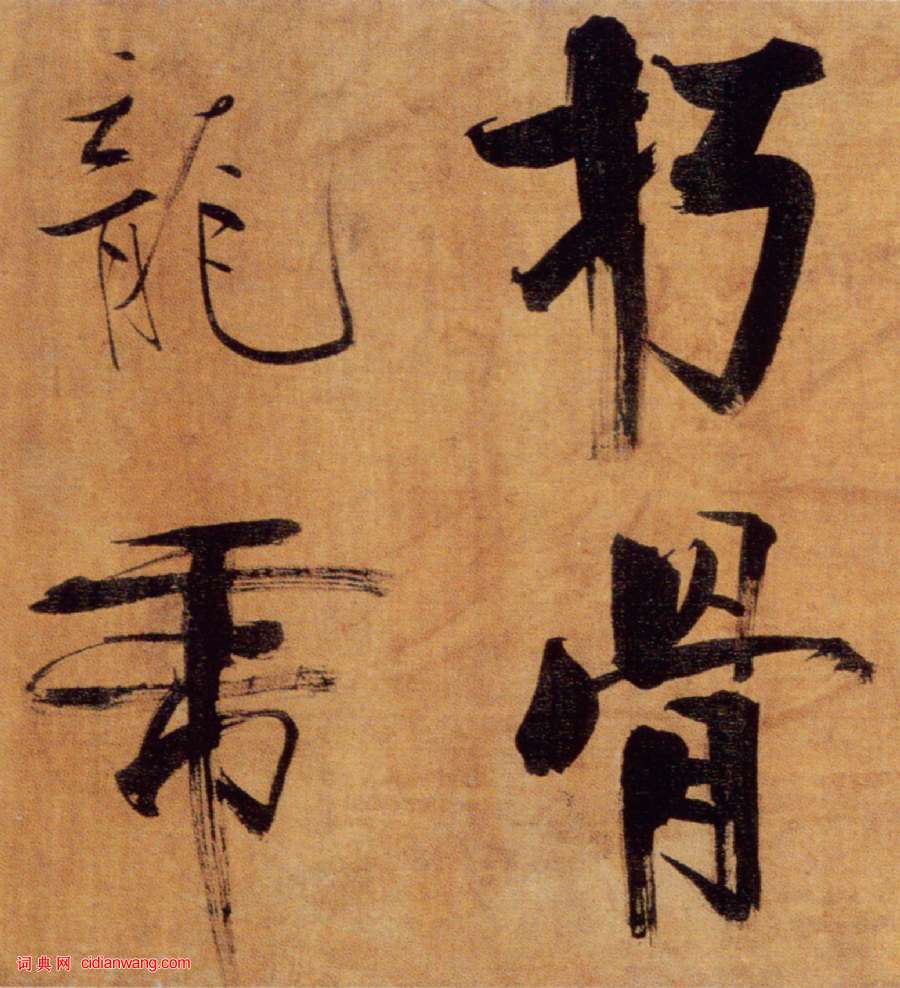 朽骨
龍虎
词典网 cidianwang.com